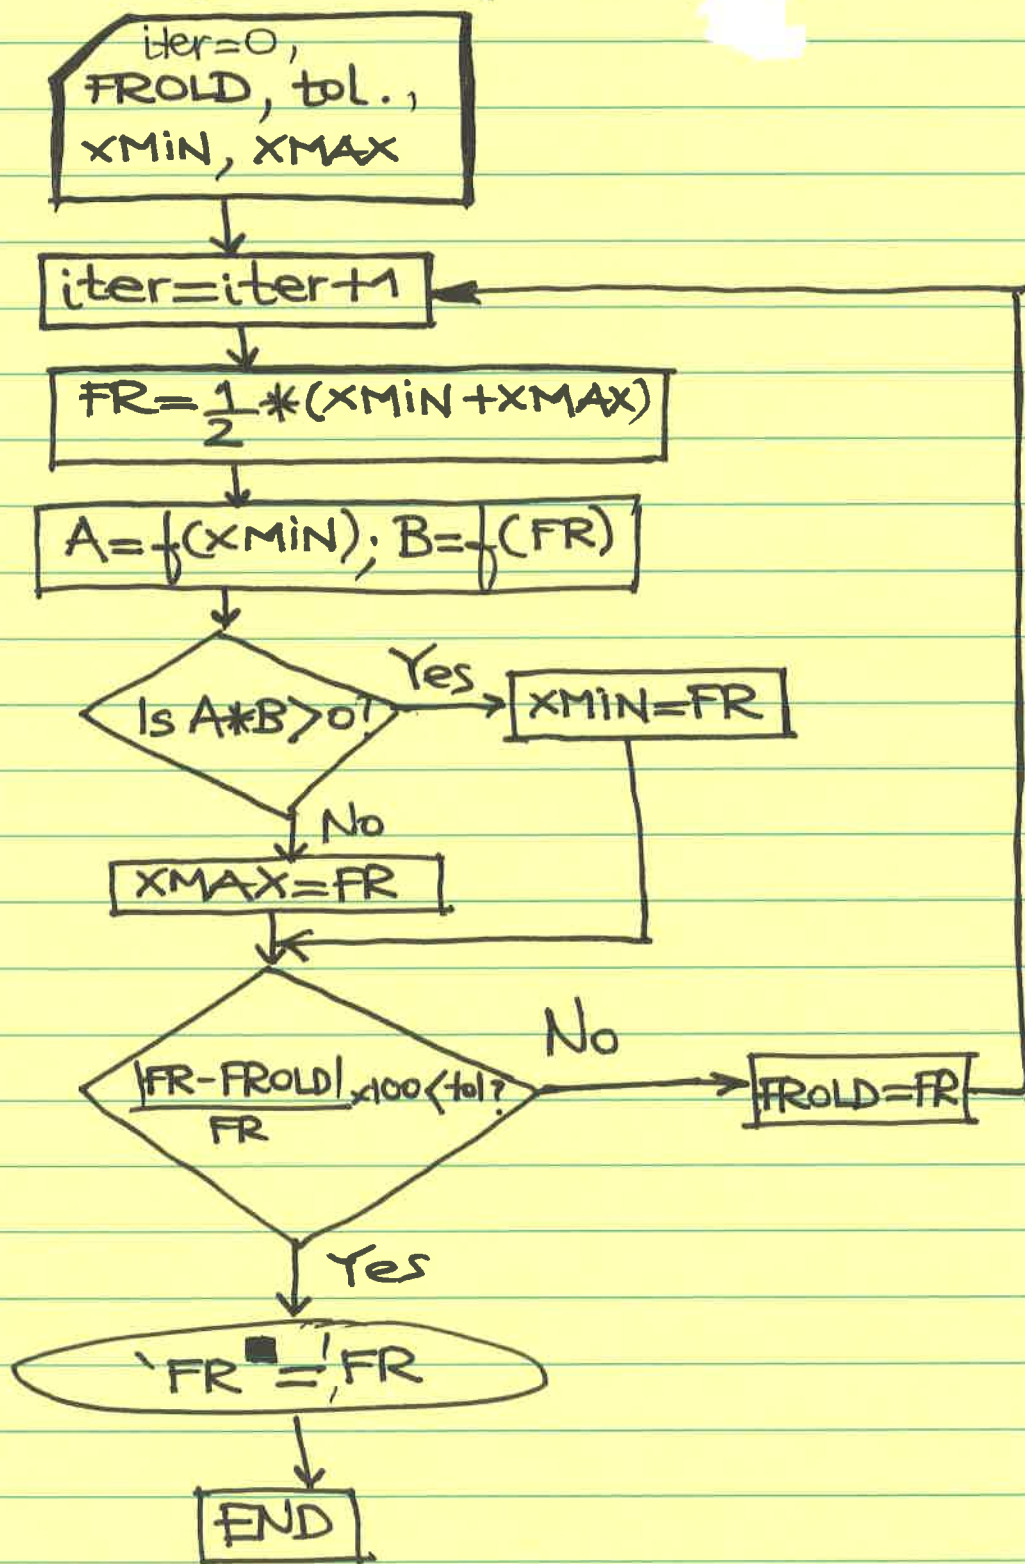 iter=0,
FROLD, tol.,
XMiN, XMAX
iter=iter+1
FR=1/2*(XMiN+XMAX)
A=f(XMiN); B=f(FR)
Is A*B>0?
Yes
XMiN=FR
No
XMAX=FR
|FR-FROLD|/FR x100<tol?
No
FROLD=FR
Yes
`FR =',FR
END